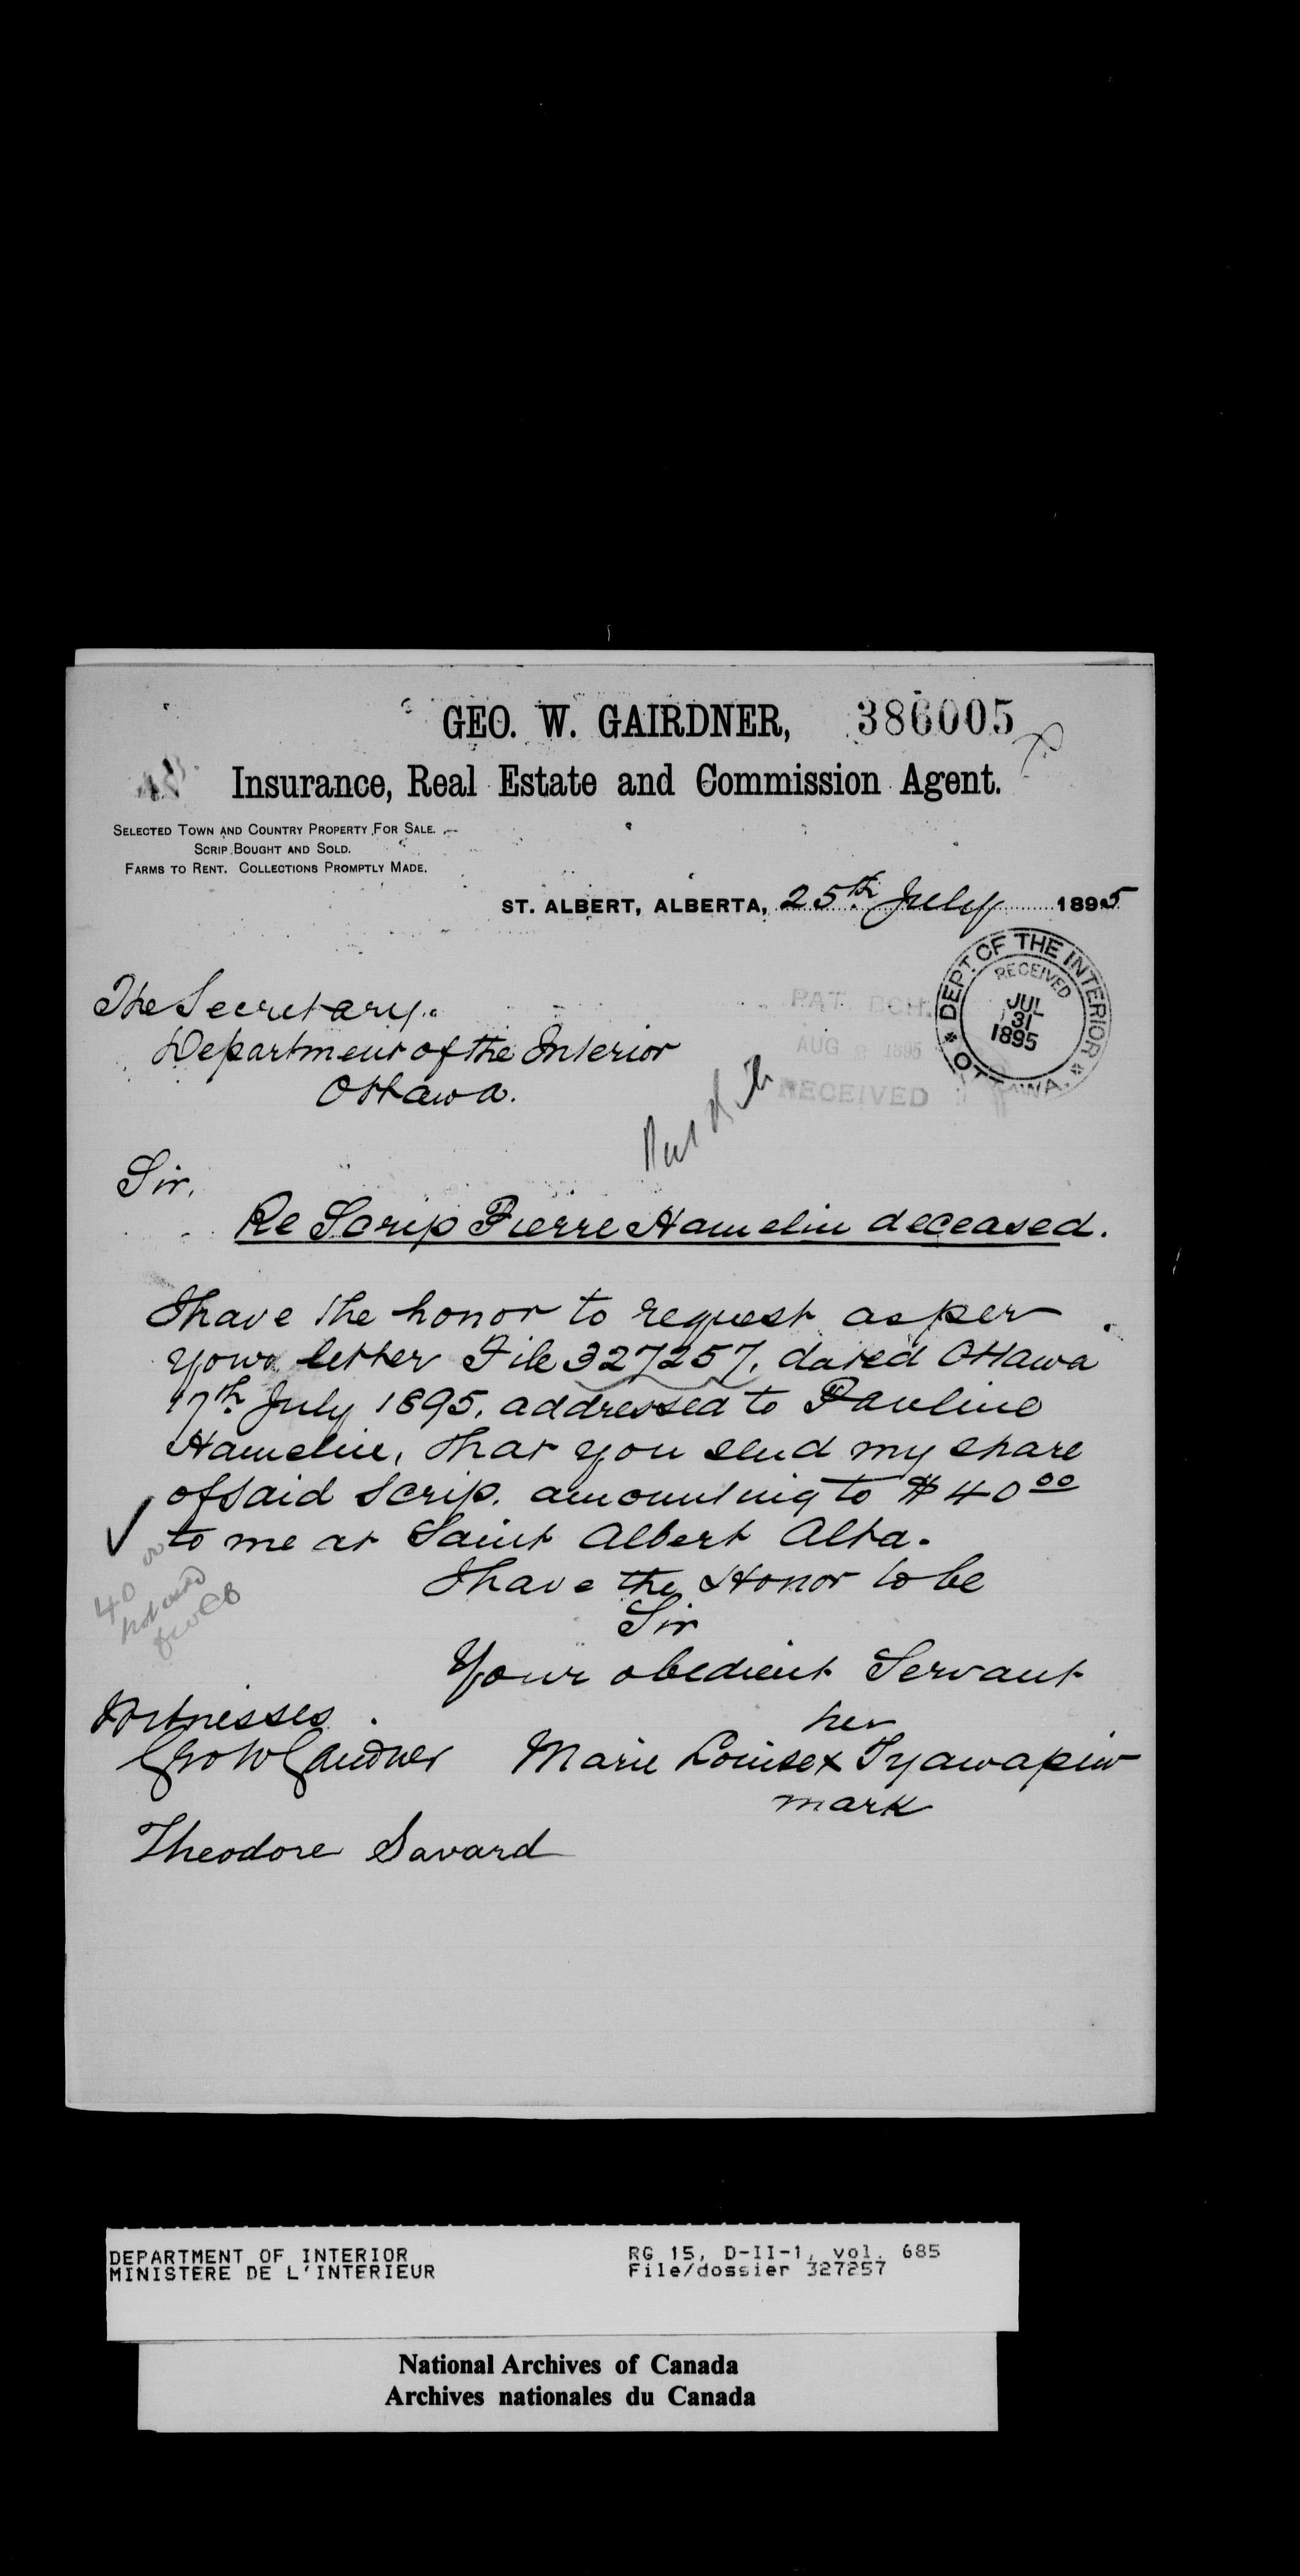 GEO. W. GAIRDNER, 386005
Insurance, Real Estate and Commission Agent.
SELECTED TOWN AND COUNTRY PROPERTY FOR SALE.
SCRIP BOUGHT AND SOLD.
FARMS TO RENT. COLLECTIONS PROMPTLY MADE.
ST. ALBERT, ALBERTA, 25th July 1895
DEPT. OF THE INTERIOR
RECEIVED
JUL
31
1895
OTTAWA.
The Secretary.
Department of the Interior
Ottawa.
PAT. BCH.
AUG 2 1895
RECEIVED
Sir.
Re Scrip Pierre Hamelin deceased.
I have the honor to request as per
your letter File 327257, dated Ottawa
17th July 1895, addressed to Pauline
Hamelin, that you send my share
of said Scrip. amounting to $40 00
to me at Saint Albert Alta.
40
I have the Honor to be
Sir
Your obedient Servant
Witnesses.
Geo W Gairdner
her
Marie Louise x Tyawapiw
mark
Theodore Savard
DEPARTMENT OF INTERIOR
MINISTERE DE L'INTERIEUR
RG 15, D-II-1, vol. 685
File/dossier 327257
National Archives of Canada
Archives nationales du Canada